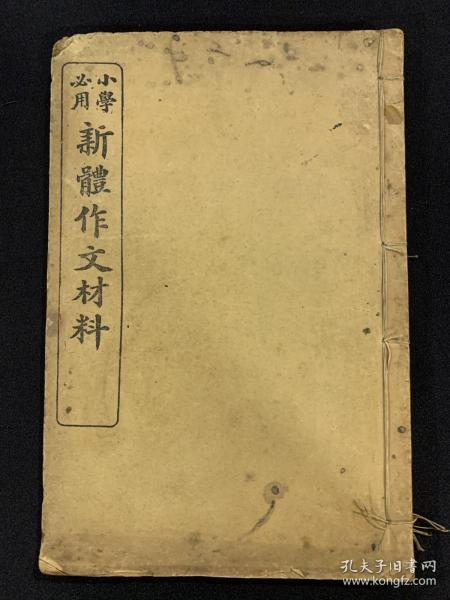 小學
必用
新體作文材料
孔夫子旧书网
www.kongfz.com